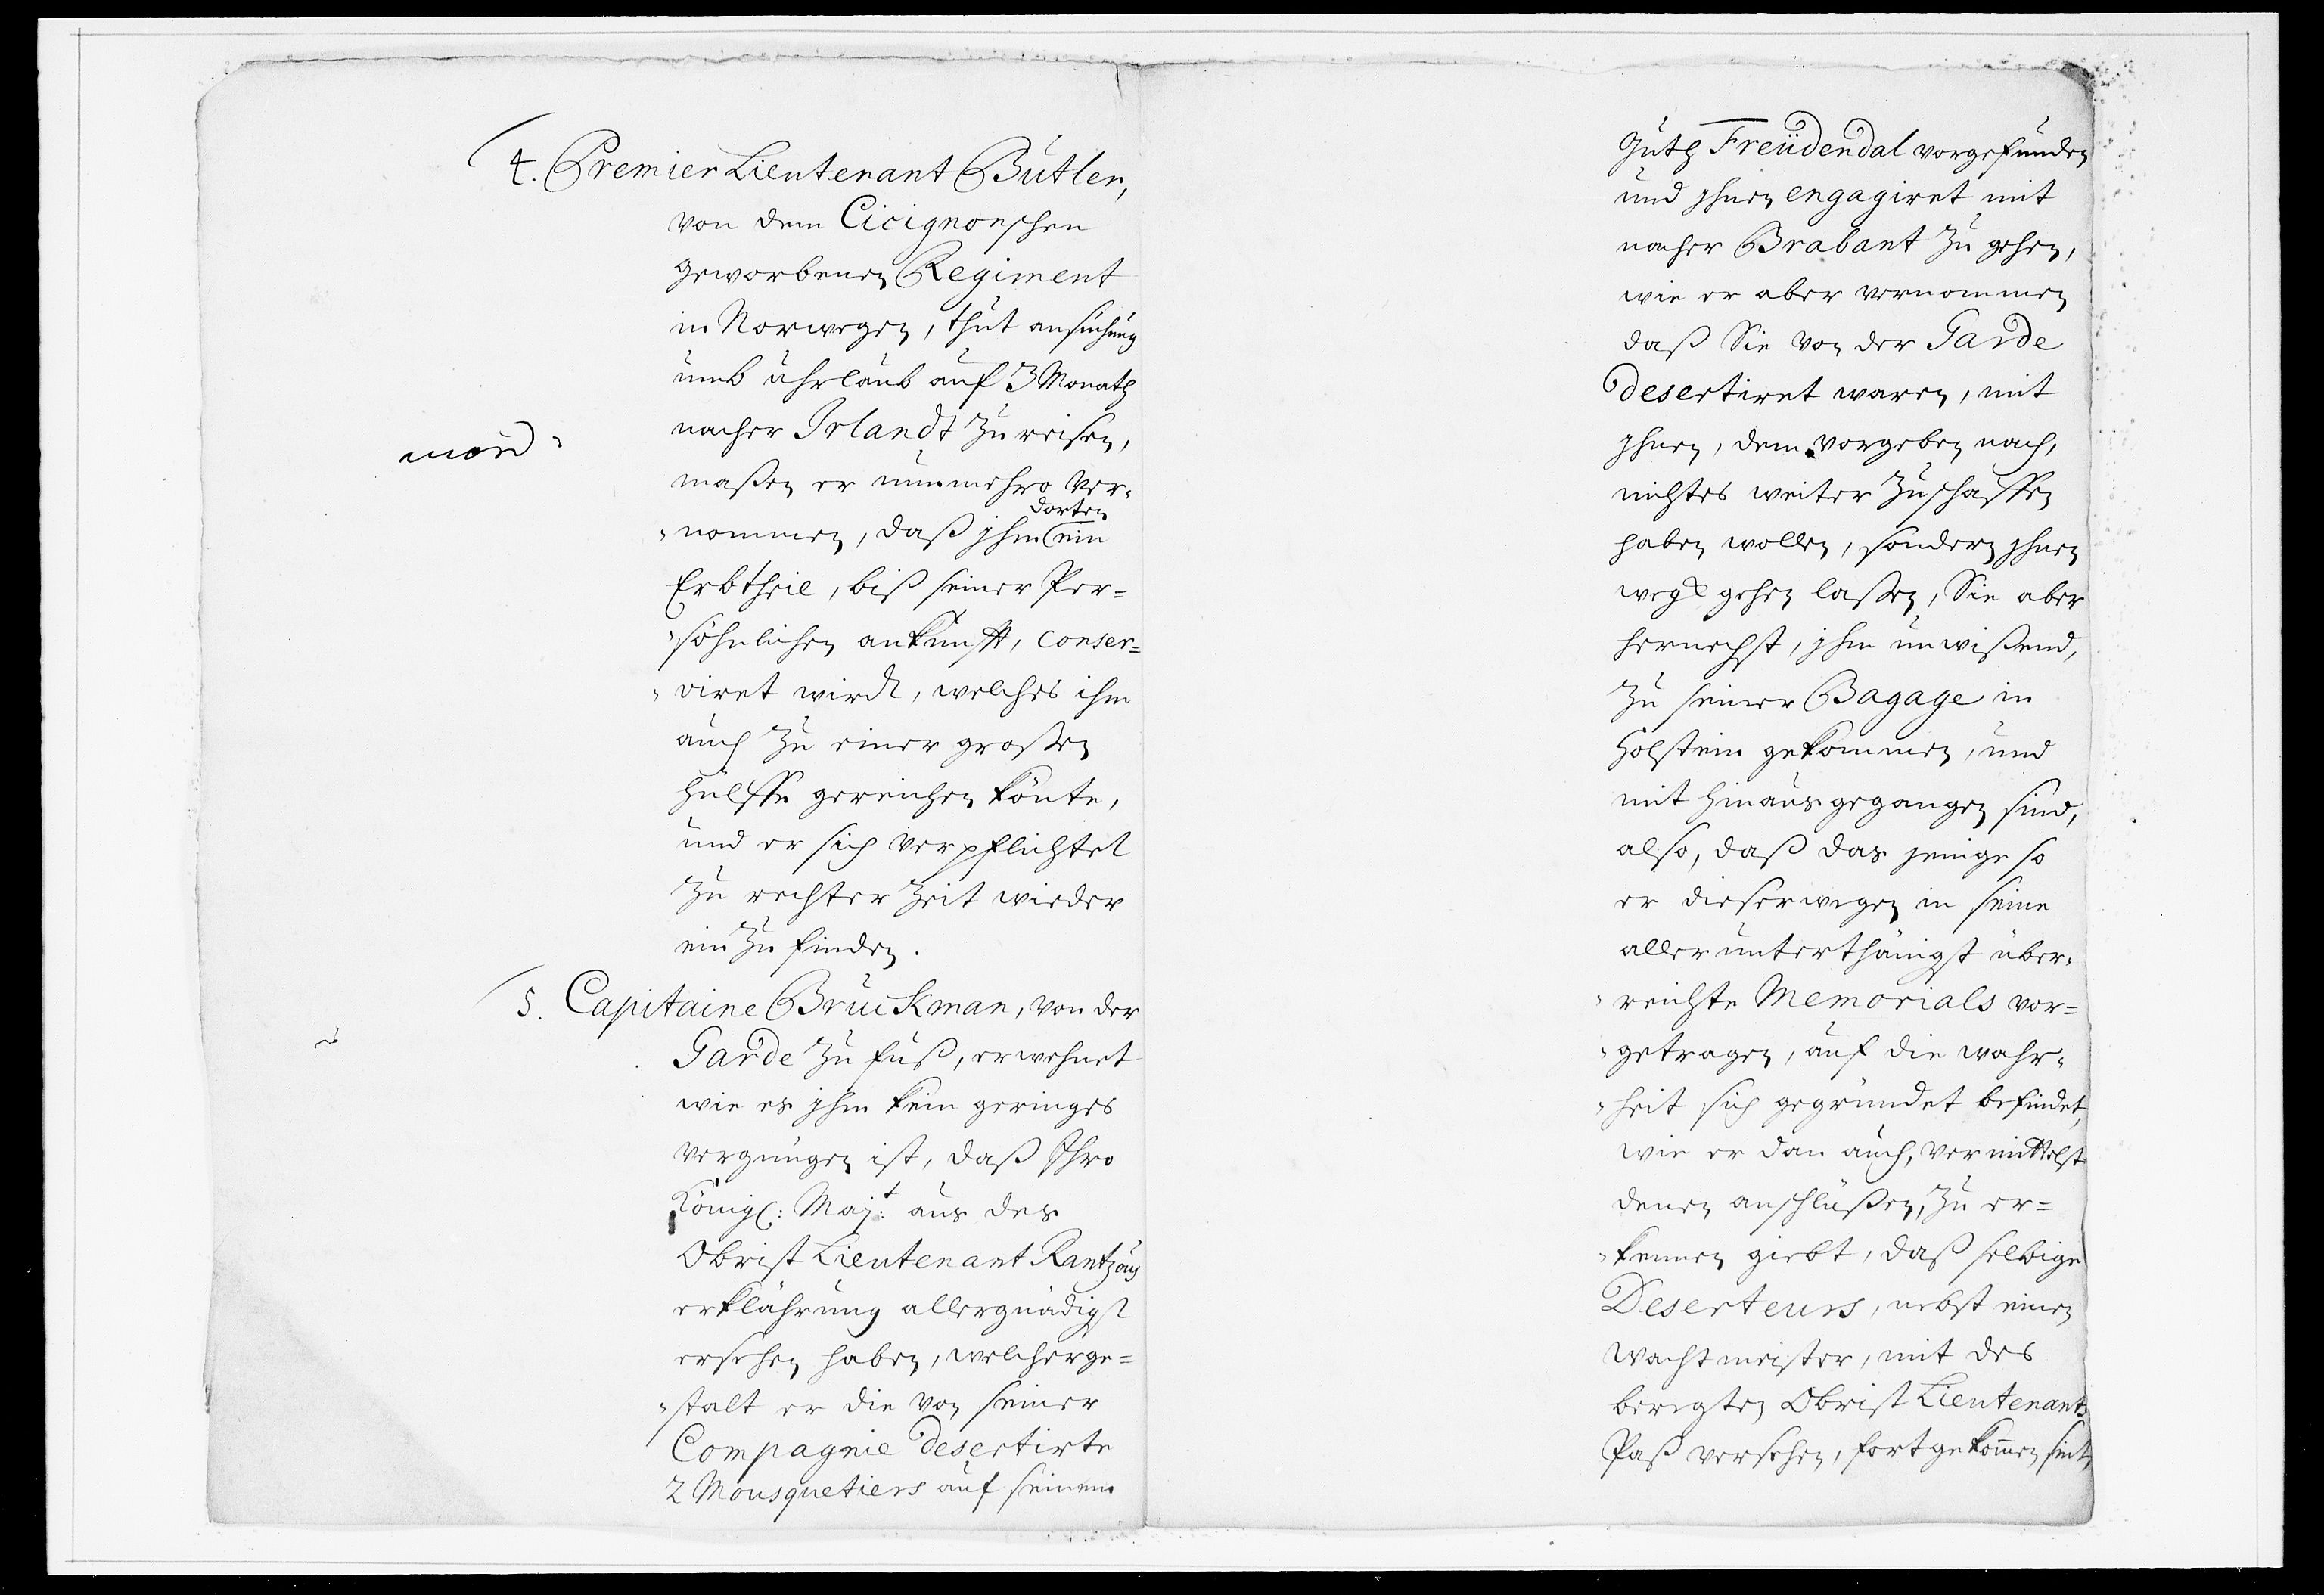 4. Premier Lieutenant Butler,
von dem Cicignonschen
geworbenen Regiment
in Norwegen, thut ansuchung
umb uhrlaub auf 3 Monath
nacher Irlandt zu reisen,
maßen er nunmehro ver-
dorten
"nommen, daß jhm ein
Erbtheil, biß seiner Per=
"söhnlichen ankunfft, conser=
"viret wirdt, welches ihm
auch zu einer großen
hülffe gereichen könte,
und er sich verpflichtet
zu rechter Zeit wieder
ein zu finden.
5. Capitaine Bruckman, von der
Garde zu fuß, erwehnet
wie es jhm kein geringes
vergnügen ist, daß Ihro
Königl: Majt: aus des
Obrist Lieutenant Rantzau
erklährung allergnädigst
ersehen haben, welcherge=
"stalt er die von seiner
Compagnie desertirte
2 Mousquetiers auf seinem
Guth Freüdendal vorgefunden
und jhnen engagiret mit
nacher Brabant zu gehen,
wie er aber vernommen
daß Sie von der Garde
desertiret waren, mit
jhnen, dem vorgeben nach,
nichtes weiter zuschaffen
haben wollen, sondern jhnen
wegk gehen laßen, Sie aber
hernechst, jhm unwißend,
zu seiner Bagage in
Holstein gekommen, und
mit hinausgegangen sind,
also, daß das jenige so
er dieserwegen in seine
allerunterthänigst über-
"reichte Memorials vor=
"getragen, auf die wahr-
"heit sich gegründet befindet,
wie er dan auch, vermittelst
denen anschlüßen, zu er=
"kennen giebt, daß selbige
Deserteurs, nebst einen
Wachtmeister, mit des
beregten Obrist Lieutenants
Paß versehen, fortgekommen sint,